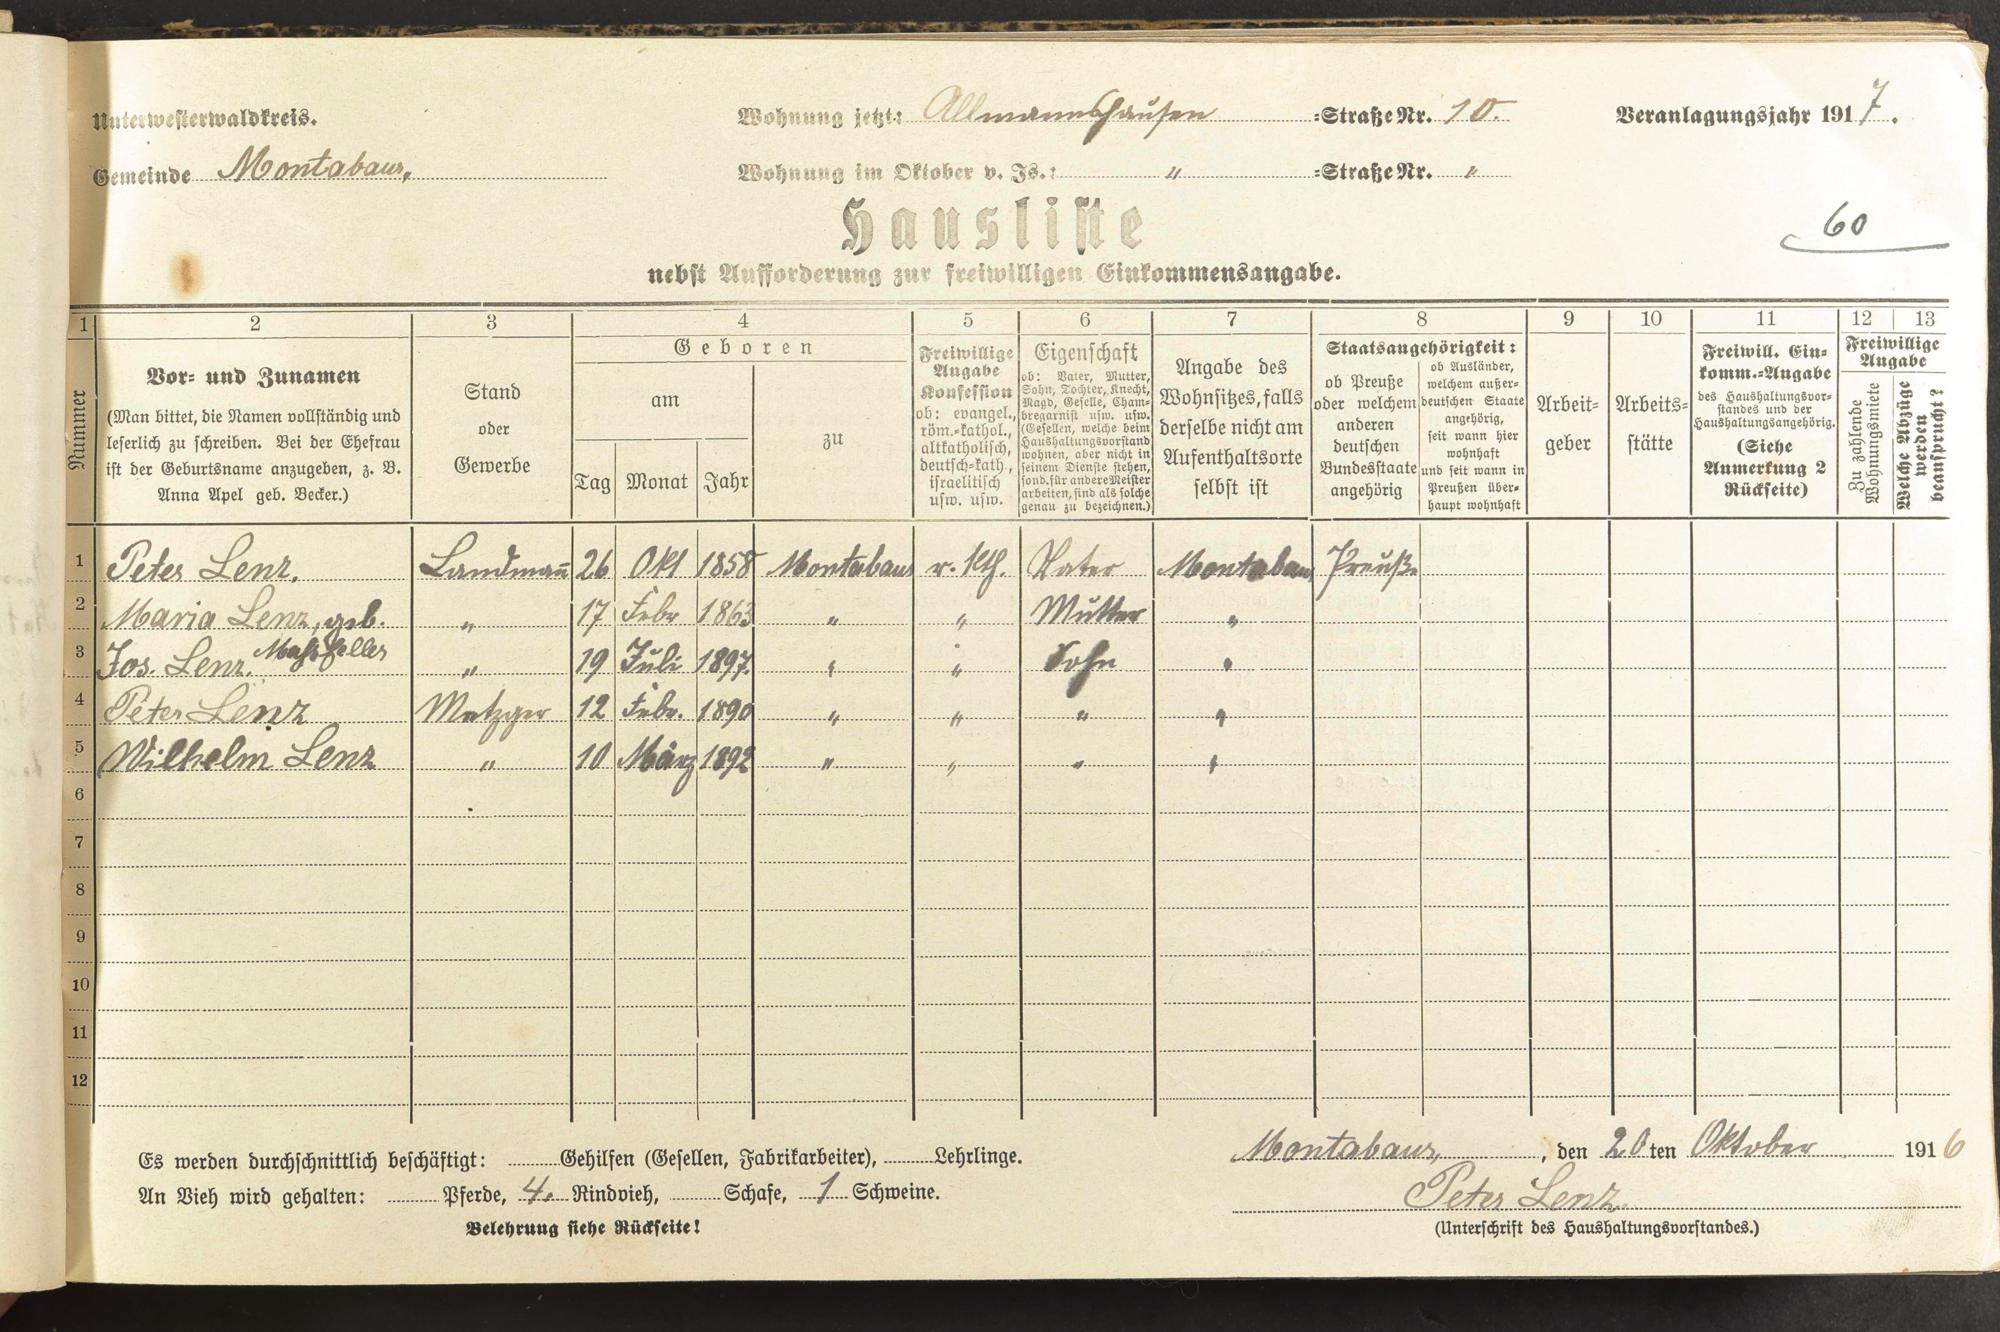 Unterwesterwaldkreis.
Wohnung jetzt: Allmannshausen =Straße Nr. 10.
Veranlagungsjahr 1917.
Gemeinde Montabaur,
Wohnung im Oktober v. Js.: " =Straße Nr. "
60
Hausliste
nebst Aufforderung zur freiwilligen Einkommensangabe.
1 2 3 4 5 6 7 8 9 10 11 12 13
Nummer
Vor- und Zunamen
(Man bittet, die Namen vollständig und
leserlich zu schreiben. Bei der Ehefrau
ist der Geburtsname anzugeben, z. B.
Anna Apel geb. Becker.)
Stand
oder
Gewerbe
Geboren
am
Tag Monat Jahr
zu
Freiwillige
Angabe
Konfession
ob: evangel.,
röm.-kathol.,
altkatholisch,
deutsch-kath.,
israelitisch
usw. usw.
Eigenschaft
ob: Vater, Mutter,
Sohn, Tochter, Knecht,
Magd, Geselle, Cham-
bregarnist usw. usw.
(Gesellen, welche beim
Haushaltungsvorstand
wohnen, aber nicht in
seinem Dienste stehen,
sond. für andere Meister
arbeiten, sind als solche
genau zu bezeichnen.)
Angabe des
Wohnsitzes, falls
derselbe nicht am
Aufenthaltsorte
selbst ist
Staatsangehörigkeit:
ob Preuße
oder welchem
anderen
deutschen
Bundesstaate
angehörig
ob Ausländer,
welchem außer-
deutschen Staate
angehörig,
seit wann hier
wohnhaft
und seit wann in
Preußen über-
haupt wohnhaft
Arbeit-
geber
Arbeits-
stätte
Freiwill. Ein-
komm.-Angabe
des Haushaltungsvor-
standes und der
Haushaltungsangehörig.
(Siehe
Anmerkung 2
Rückseite)
Freiwillige
Angabe
Zu zahlende
Wohnungsmiete
Welche Abzüge
werden
beansprucht?
1 Peter Lenz. Landmañ 26 Okt 1858 Montabaur r. kth. Vater Montabaur Preuße
2 Maria Lenz, geb. " 17 Febr 1863 " " Mutter "
Massfeller
3 Jos. Lenz. " 19 Juli 1897. " " Sohn "
4 Peter Lenz Metzger 12 Febr. 1890 " " " "
5 Wilhelm Lenz " 10 März 1892 " " " "
6
7
8
9
10
11
12
Es werden durchschnittlich beschäftigt: Gehilfen (Gesellen, Fabrikarbeiter), Lehrlinge.
Montabaur, , den 20ten Oktober 1916
An Vieh wird gehalten: Pferde, 4. Rindvieh, Schafe, 1 Schweine.
Peter Lenz.
Belehrung siehe Rückseite!
(Unterschrift des Haushaltungsvorstandes.)